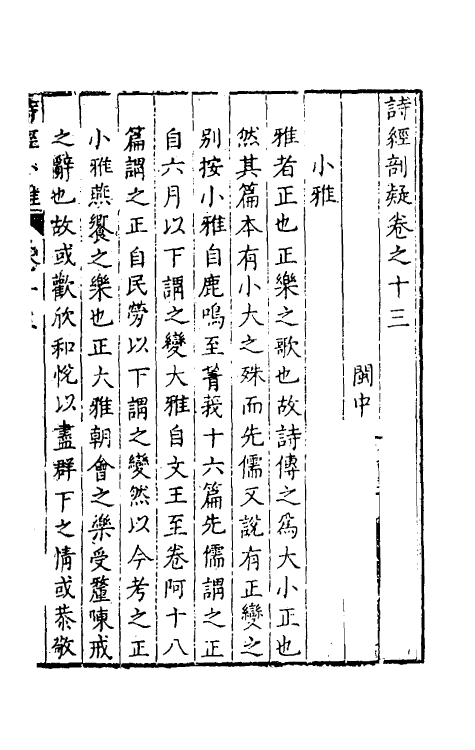 詩經剖疑卷之十三
閩中
小雅
雅者正也正樂之歌也故詩傳之爲大小正也
然其篇本有小大之殊而先儒又說有正變之
別按小雅自鹿鳴至菁莪十六篇先儒謂之正
自六月以下謂之變大雅自文王至卷阿十八
篇謂之正自民勞以下謂之變然以今考之正
小雅燕饗之樂也正大雅朝會之樂受釐陳戒
之辭也故或歡欣和悅以盡群下之情或恭敬